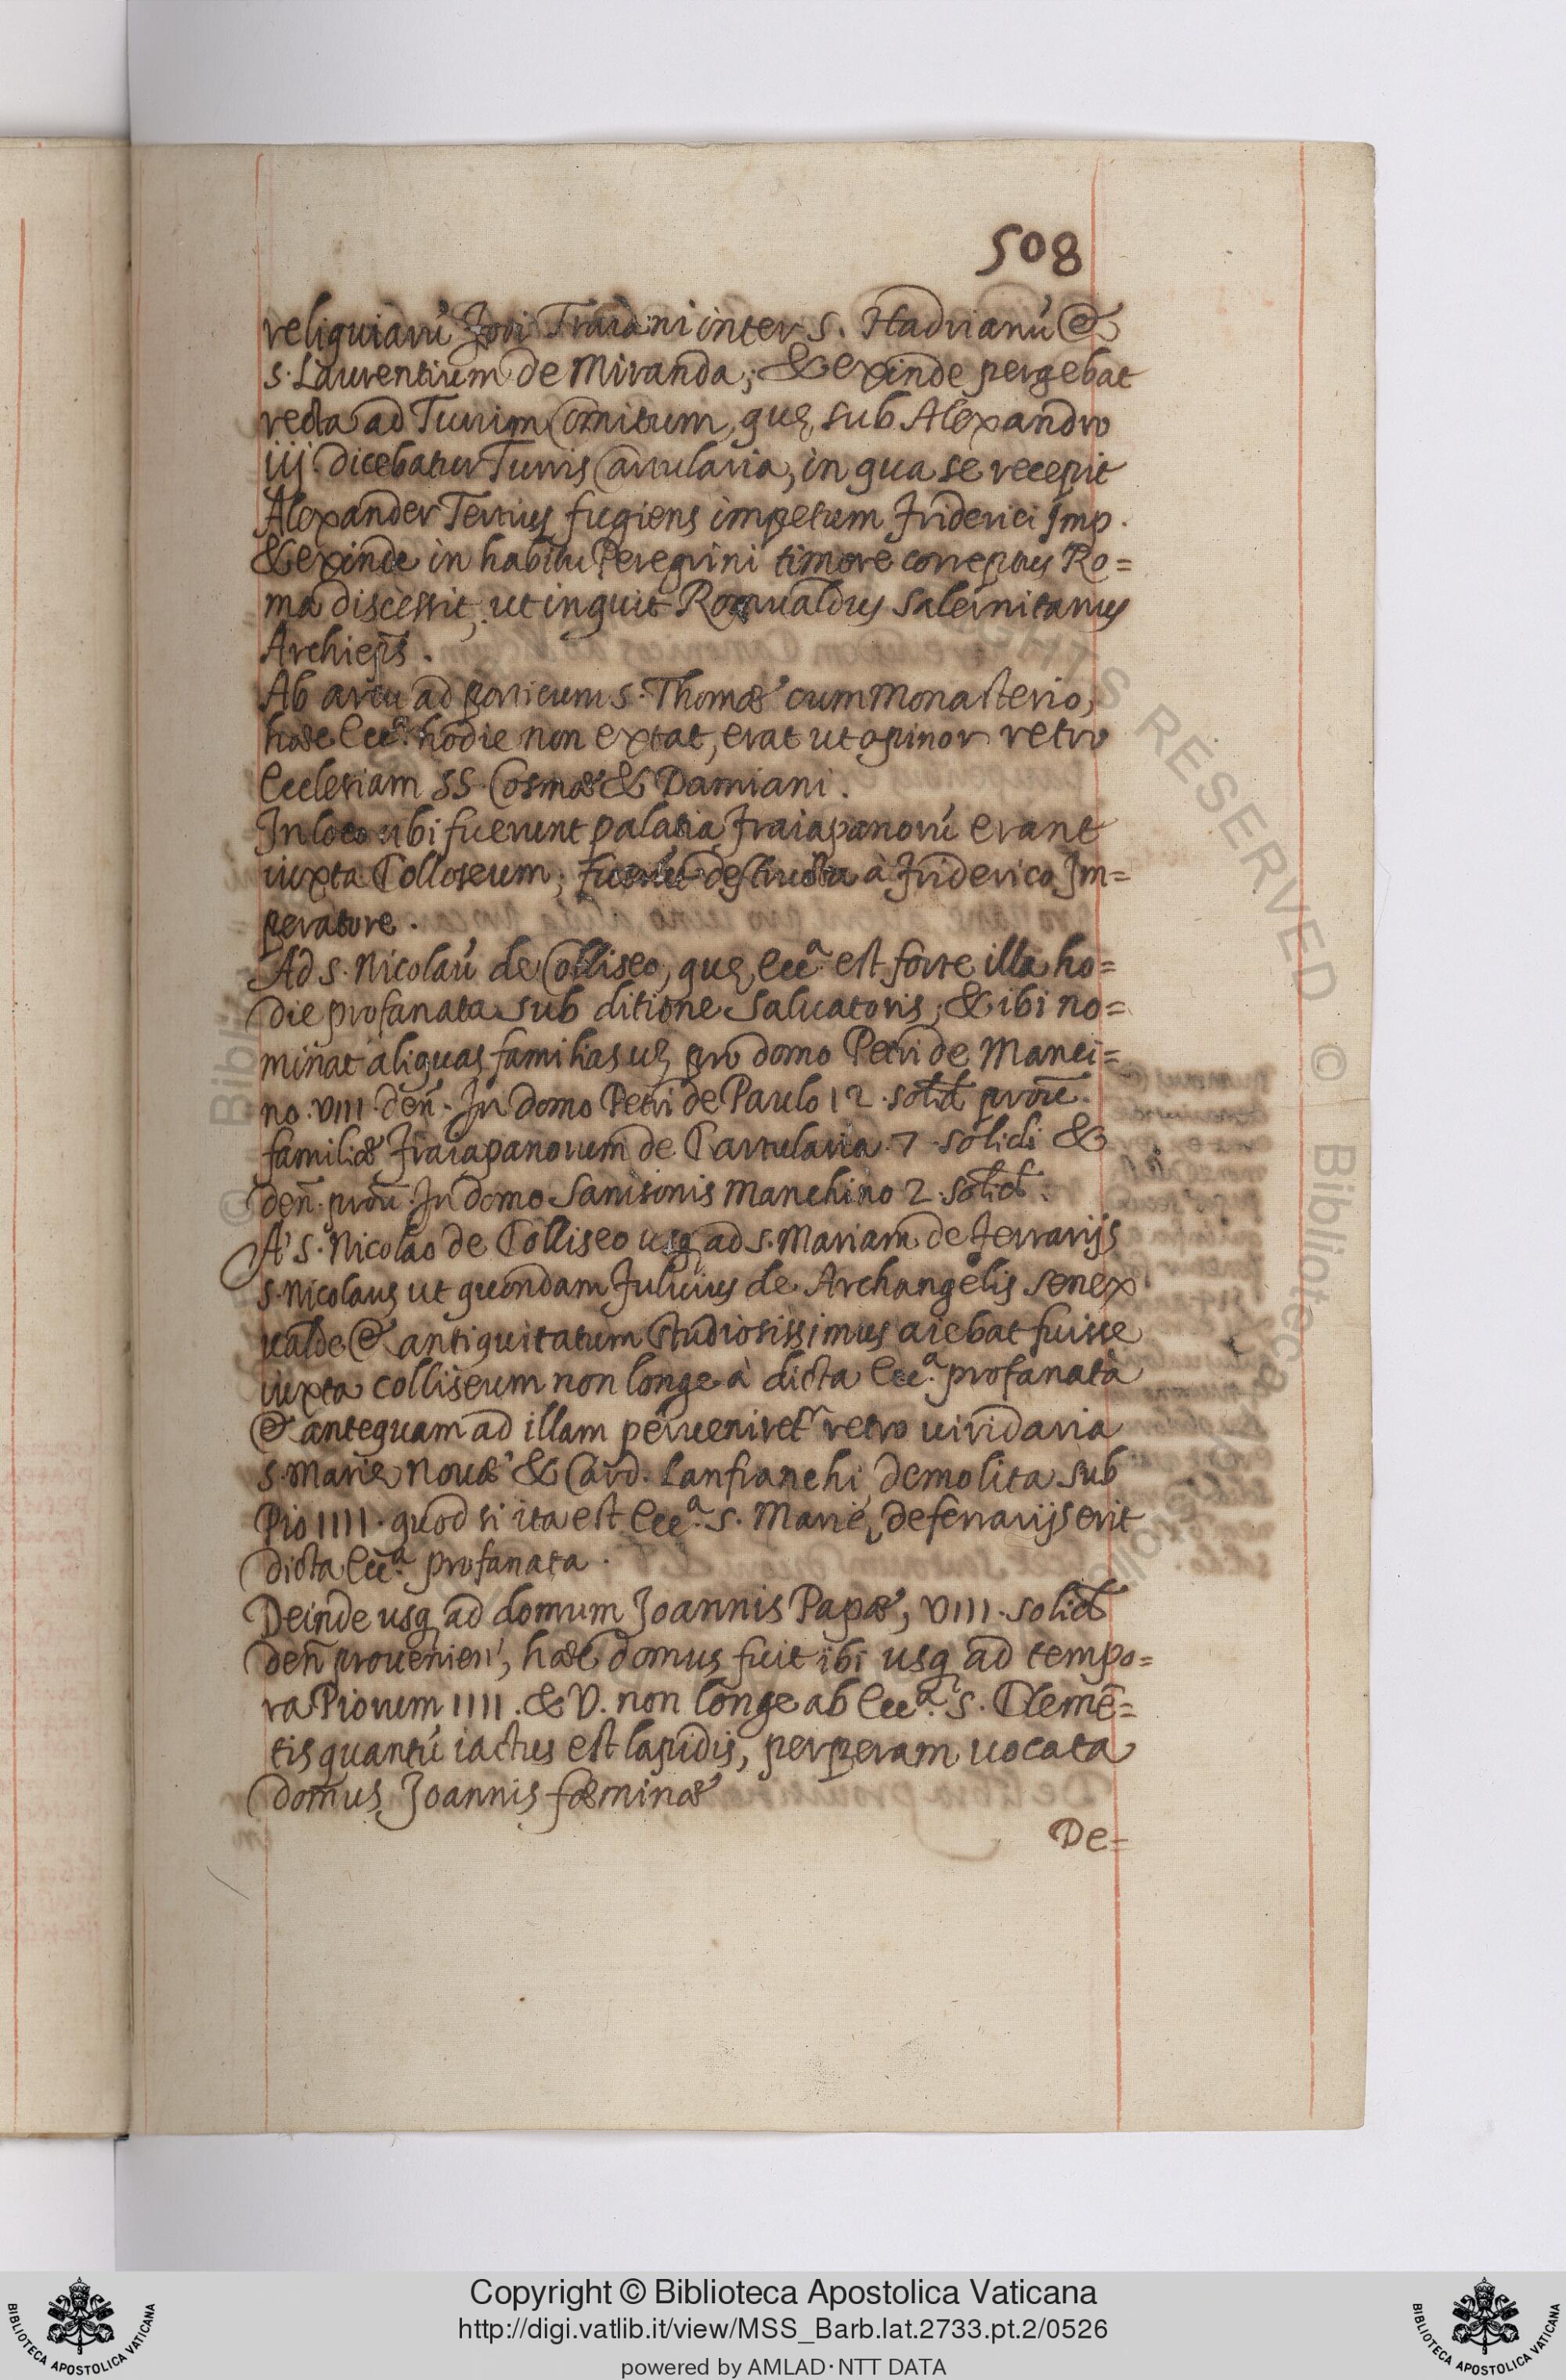 508
reliquiarũ Fori Traiani inter S. Hadrianũ &
S. Laurentium de Miranda; & exinde pergebat
recta ad Turrim Comitum, quę sub Alexandro
iij. dicebatur Turris Cartularia, in qua se recepit
Alexander Tertius fugiens impetum Friderici Imp.
& exinde in habitu Peregrini timore correptus Ro=
ma discessit, ut inquit Romualdus Salernitanus
Archiep̃s.
Ab arcu ad porticum S. Thomæ cum Monasterio,
hæc Ecc.ª hodie non extat, erat ut opinor retro
Ecclesiam SS. Cosmæ & Damiani.
In loco ubi fuerunt palatia Fraiapanorũ erant
iuxta Colloseum; fuerũt destructa à Friderico Im=
peratore.
Ad S. Nicolaũ de Colliseo, quę Ecc.ª est forte illa ho=
die profanata sub ditione Saluatoris, & ibi no=
minat aliquas familias uę pro domo Petri de Manci=
no. VIII. deñ. In domo Petri de Paulo 12. solid
familiæ Fraiapanorum de Cartularia. 7. solidi &
deñ. In domo Sanisonis Manchino 2. solid.
A' S. Nicolao de Colliseo usq ad S. Mariam de ferrarijs
S. Nicolaus ut quondam Fuluius de Archangelis senex
ualde & antiquitatum studiosissimus aiebat fuisse
iuxta colliseum non longe à dicta Ecc.ª profanata
& antequam ad illam perueniretʳ retro uiridaria
S. Marię Nouæ & Card. Lanfranchi demolita sub
Pio IIII. quod si ita est Ecc.ª S. Marię de ferrarijs erit
dicta Ecc.ª profanata.
Deinde usq ad domum Joannis Papæ, VIII. solid
deñ prouenien', hæc domus fuit ibi usq ad tempo=
ra Piorum IIII. & V. non longe ab Ecc.ª S. Clemẽ=
tis quantũ iactus est lapidis, perperam uocata
domus Joannis fæminæ
De=
© Biblioteca Apostolica
RIGHTS RESERVED
Copyright © Biblioteca Apostolica Vaticana
http://digi.vatlib.it/view/MSS_Barb.lat.2733.pt.2/0526
powered by AMLAD·NTT DATA
BIBLIOTECA APOSTOLICA VATICANA
BIBLIOTECA APOSTOLICA VATICANA